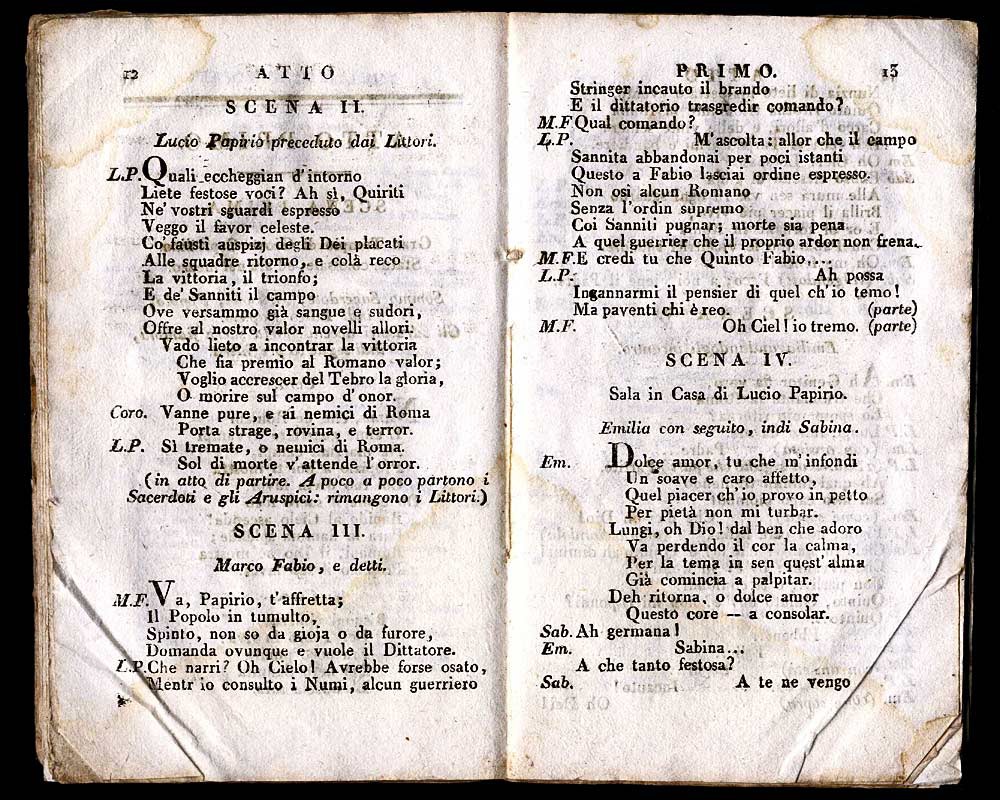 12 ATTO
SCENA II.
Lucio Papirio preceduto dai Littori.
L.P. Quali eccheggian d'intorno
Liete festose voci? Ah sì, Quiriti
Ne' vostri sguardi espresso
Veggo il favor celeste.
Co' fausti auspizj degli Dei placati
Alle squadre ritorno, e colà reco
La vittoria, il trionfo;
E de' Sanniti il campo
Ove versammo già sangue e sudori,
Offre al nostro valor novelli allori.
Vado lieto a incontrar la vittoria
Che fia premio al Romano valor;
Voglio accrescer del Tebro la gloria,
O morire sul campo d'onor.
Coro. Vanne pure, e ai nemici di Roma
Porta strage, rovina, e terror.
L.P. Sì tremate, o nemici di Roma.
Sol di morte v'attende l'orror.
(in atto di partire. A poco a poco partono i
Sacerdoti e gli Aruspici: rimangono i Littori.)
SCENA III.
Marco Fabio, e detti.
M.F. Va, Papirio, t'affretta;
Il Popolo in tumulto,
Spinto, non so da gioja o da furore,
Domanda ovunque e vuole il Dittatore.
L.P. Che narri? Oh Cielo! Avrebbe forse osato,
Mentr'io consulto i Numi, alcun guerriero
PRIMO. 13
Stringer incauto il brando
E il dittatorio trasgredir comando?
M.F. Qual comando?
L.P. M'ascolta: allor che il campo
Sannita abbandonai per poci istanti
Questo a Fabio lasciai ordine espresso.
Non osi alcun Romano
Senza l'ordin supremo
Coi Sanniti pugnar; morte sia pena
A quel guerrier che il proprio ardor non frena.
M.F. E credi tu che Quinto Fabio....
L.P. Ah possa
Ingannarmi il pensier di quel ch'io temo!
Ma paventi chi è reo. (parte)
M.F. Oh Ciel! io tremo. (parte)
SCENA IV.
Sala in Casa di Lucio Papirio.
Emilia con seguito, indi Sabina.
Em. Dolce amor, tu che m'infondi
Un soave e caro affetto,
Quel piacer ch'io provo in petto
Per pietà non mi turbar.
Lungi, oh Dio! dal ben che adoro
Va perdendo il cor la calma,
Per la tema in sen quest'alma
Già comincia a palpitar.
Deh ritorna, o dolce amor
Questo core — a consolar.
Sab. Ah germana!
Em. Sabina...
A che tanto festosa?
Sab. A te ne vengo